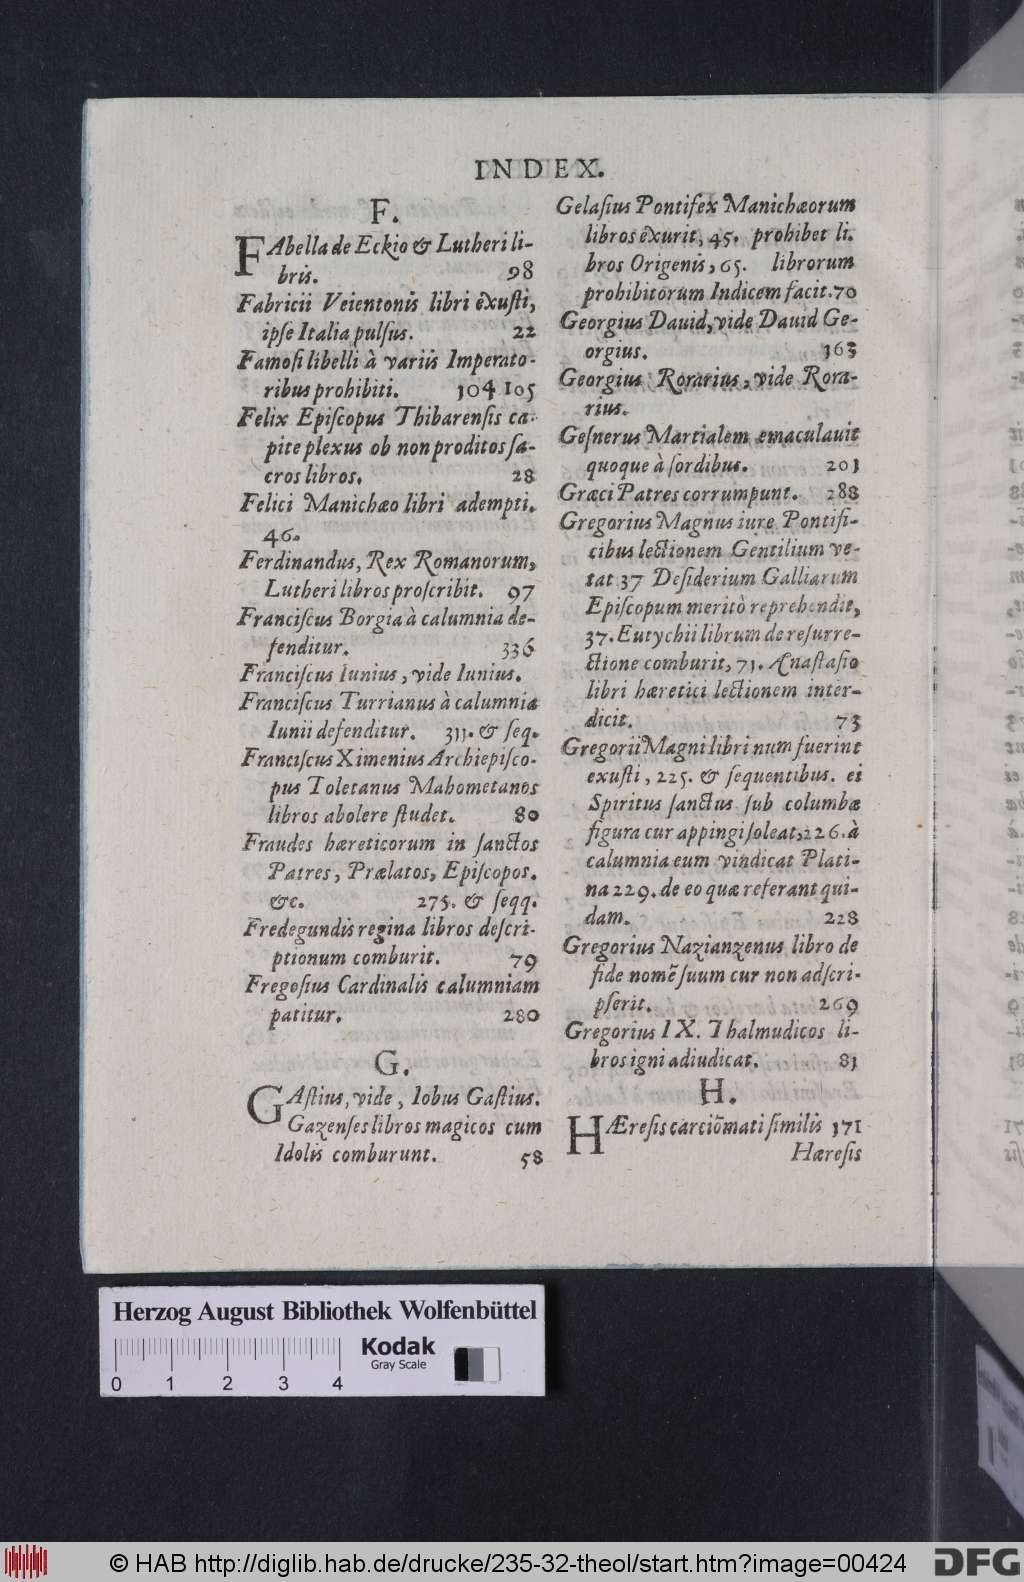 INDEX.
F.
FAbella de Eckio & Lutheri li-
bris. 98
Fabricii Veientonis libri exusti,
ipse Italia pulsus. 22
Famosi libelli à variis Imperato-
ribus prohibiti. 104 105
Felix Episcopus Thibarensis ca-
pite plexus ob non proditos sa-
cros libros. 28
Felici Manichæo libri adempti.
46.
Ferdinandus, Rex Romanorum,
Lutheri libros proscribit. 97
Franciscus Borgia à calumnia de-
fenditur. 336
Franciscus Iunius, vide Iunius.
Franciscus Turrianus à calumnia
Iunii defenditur. 311. & seq.
Franciscus Ximenius Archiepisco-
pus Toletanus Mahometanos
libros abolere studet. 80
Fraudes hæreticorum in sanctos
Patres, Prælatos, Episcopos.
&c. 275. & seqq.
Fredegundis regina libros descri-
ptionum comburit. 79
Fregosius Cardinalis calumniam
patitur. 280
G.
GAstius, vide, Iobus Gastius.
Gazenses libros magicos cum
Idolis comburunt. 58
Gelasius Pontifex Manichæorum
libros exurit, 45. prohibet li.
bros Origenis, 65. librorum
prohibitorum Indicem facit. 70
Georgius Dauid, vide Dauid Ge-
orgius. 363
Georgius Rorarius, vide Rora-
rius.
Gesnerus Martialem emaculauit
quoque à sordibus. 201
Græci Patres corrumpunt. 288
Gregorius Magnus iure Pontifi-
cibus lectionem Gentilium ve-
tat 37 Desiderium Galliarum
Episcopum meritò reprehendit,
37. Eutychii librum de resurre-
ctione comburit, 71. Anastasio
libri hæretici lectionem inter-
dicit. 73
Gregorii Magni libri num fuerint
exusti, 225. & sequentibus. ei
Spiritus sanctus sub columbæ
figura cur appingi soleat, 226. à
calumnia eum vindicat Plati-
na 229. de eo quæ referant qui-
dam. 228
Gregorius Nazianzenus libro de
fide nomē suum cur non adscri-
pserit. 269
Gregorius IX. Thalmudicos li-
bros igni adiudicat. 81
H.
HÆresis carciōmati similis 171
Hæresis
Herzog August Bibliothek Wolfenbüttel
Kodak
Gray Scale
0 1 2 3 4
© HAB http://diglib.hab.de/drucke/235-32-theol/start.htm?image=00424
DFG